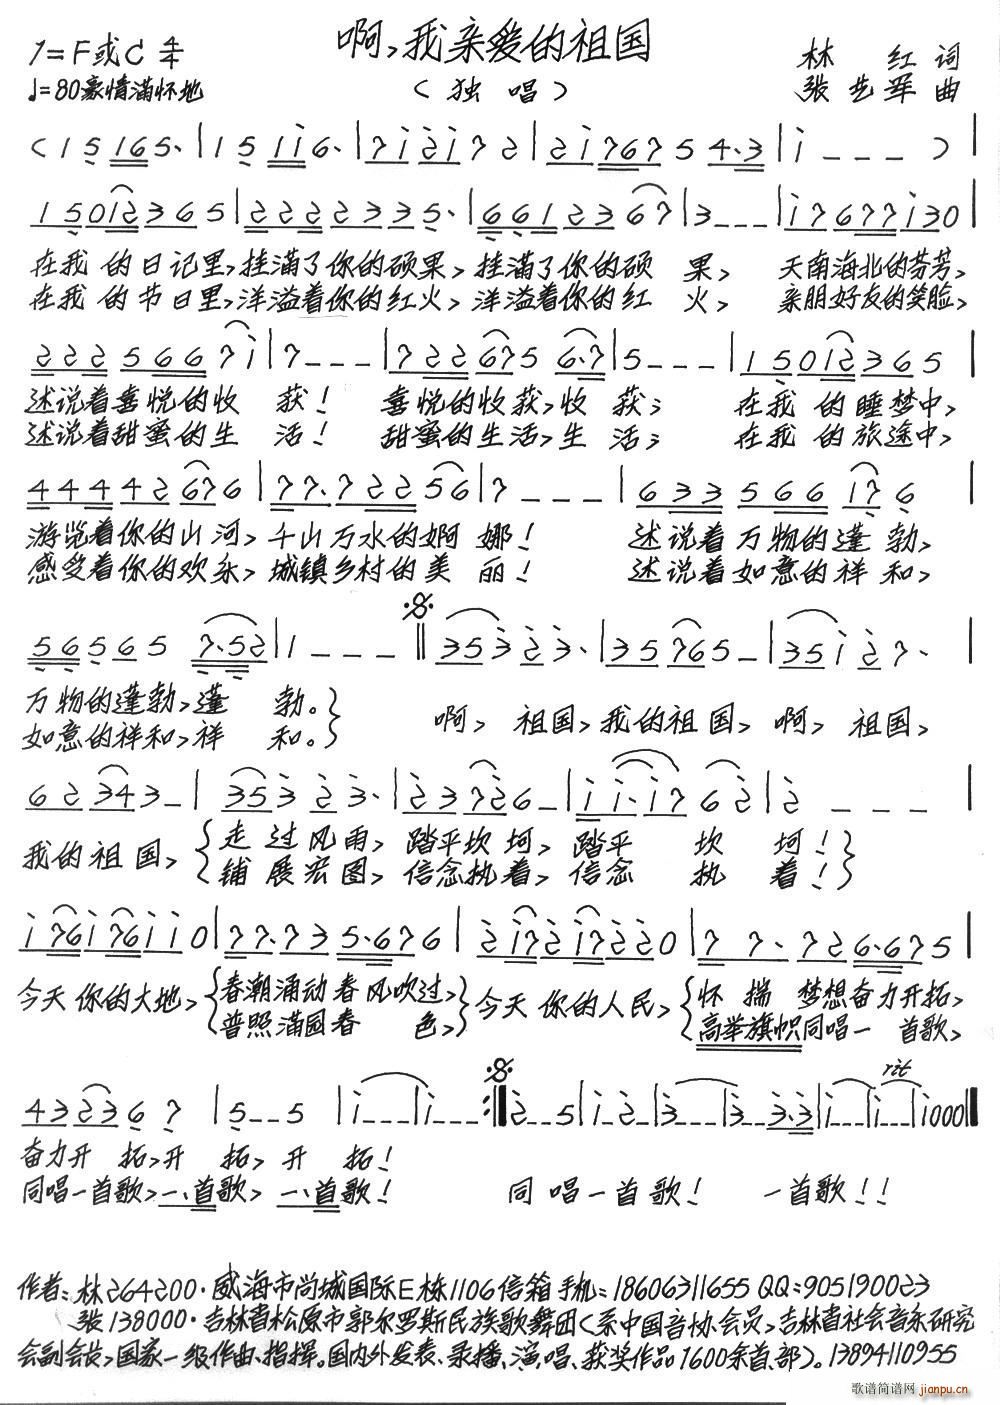 啊,我亲爱的祖国
1=F或C 4/4
林 红 词
♩=80豪情满怀地
(独 唱)
张艺军 曲
(1 5 165·|1 5 1i6·|7i2i72|2i7675 4·3|i - - - )|
15012365|2222335·|66123 67|3---|i7677i30|
在我 的日记里,挂满了你的硕果,挂满了你的硕 果, 天南海北的芬芳,
在我 的节日里,洋溢着你的红火,洋溢着你的红 火, 亲朋好友的笑脸,
222 566 7i|7---|722675 6·7|5---|15012365|
述说着喜悦的收 获! 喜悦的收获,收 获; 在我 的睡梦中,
述说着甜蜜的生 活! 甜蜜的生活,生 活; 在我 的旅途中,
44442676|77·72256|7 - - -|633 566 17 6|
游览着你的山河,千山万水的婀娜! 述说着万物的蓬勃,
感受着你的欢乐,城镇乡村的美丽! 述说着如意的祥和,
56565 7·52|1 - - -‖353 23·|35765-|35i 27·|
万物的蓬勃,蓬 勃。}
如意的祥和,祥 和。}
啊, 祖国,我的祖国, 啊, 祖国,
62 343-|353 23·|23726-|ii·i7 62|2 - - -|
我的祖国,
{走过风雨,踏平坎坷,踏平 坎 坷!}
{铺展宏图,信念执着,信念 执 着!}
i76i76ii0|77·735·676|2i72i7220|77·726·675|
今天你的大地,
{春潮涌动春风吹过,}
{普照满园春 色,}
今天你的人民,
{怀揣 梦想奋力开拓,
{高举旗帜同唱一 首歌,
432367|5--5|i---|i---:‖2--5|i-2-|3---|3--3·3|i---|i---|rit i000‖
奋力开 拓,开 拓, 开 拓!
同唱一首歌,一、首歌, 一、首歌! 同 唱一首歌! 一首歌!!
作者:林264200·威海市尚城国际E栋1106信箱手机:18606311655 QQ:905190023
张138000·吉林省松原市郭尔罗斯民族歌舞团(系中国音协会员,吉林省社会音乐研究
会副会长,国家一级作曲、指挥。国内外发表、录播、演、唱、获奖作品1600余首、部)。13894110955
歌谱简谱网 jianpu.cn